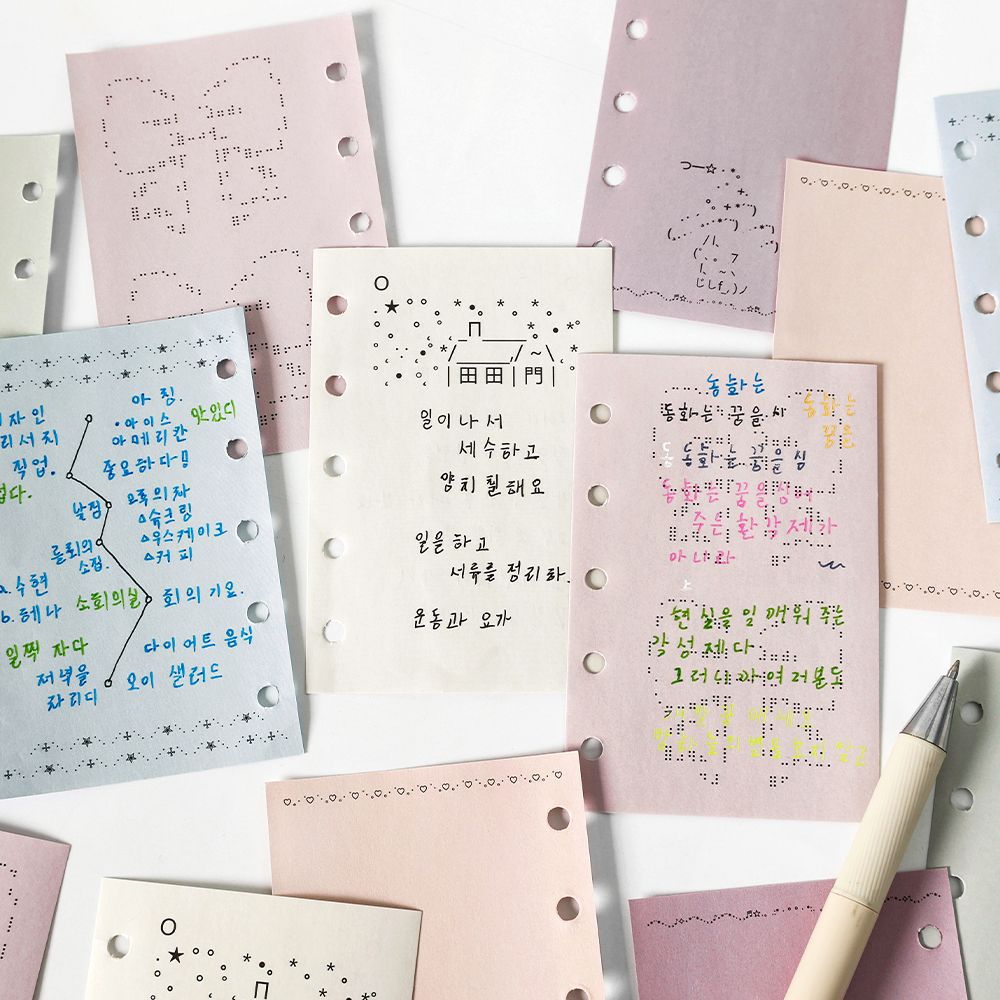 아침.
맛있디
•아이스
아메리칸
중요하다!
자인
리서치
직업.
날짐
오후의차
△슈크림
△우스케이크
△커피
소집.
a.수현
b.헤나
소회의실
회의 기요.
일찍 자다
다이어트 음식
저녁을
오이 샐러드
차리디
일이나서
세수하고
양치 칠해요
일을하고
서류를 정리하.
운동과 요가
동화는
동화는 꿈을 시
동화는
꿈을
동 동화는 꿈을 심
동화는 꿈을 심어
주은 환각제가
아니라
현실을 일깨워 주는
각성제다
그러니까 여러분도